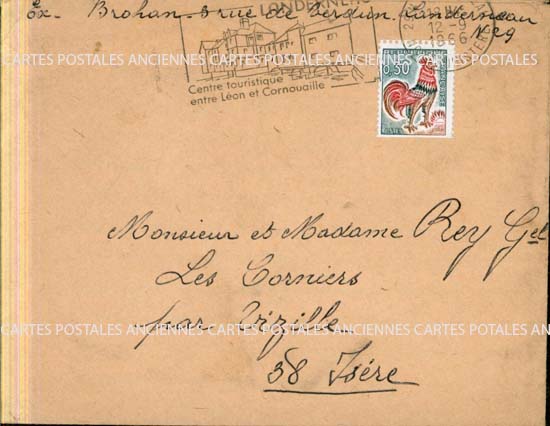 Ex. Brohan. 3 rue de Verdun. Landerneau
N. 29
LANDERNEAU
Centre touristique
entre Léon et Cornouaille
0,30
CARTES POSTALES ANCIENNES CARTES POSTALES ANCIENNES CARTES POTALES ANCIENNES
Monsieur et Madame Rey Gel
Les Corniers
par Vizille
38 Isère
CARTES POSTALES ANCIENNES CARTES POSTALES ANCIENNES CARTES POTALES ANCIENNES